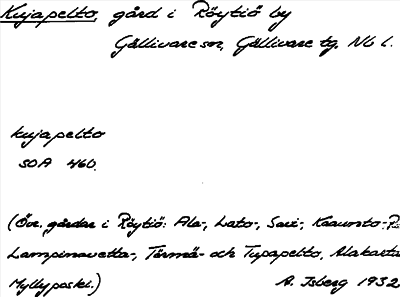 Kujapelto, gård i Röytiö by
Gällivare sn, Gällivare tg, Nb l.
kujapelto
SOA 460.
(Övr. gårdar i Röytiö: Ala-, Lato-, Savi-,
Lampinavetta-, Törmä- och Tupapelto, Alakarta
Myllyposki.)
A. Isberg 1932